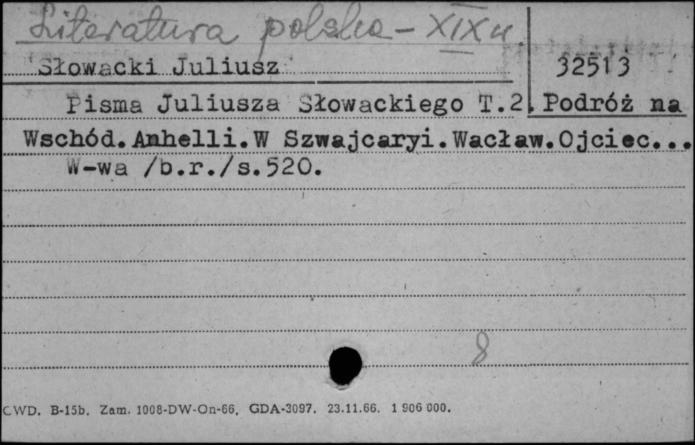 Literatura polska – XIX w
Słowacki Juliusz 32513
Pisma Juliusza Słowackiego T.2. Podróż na
Wschód. Anhelli. W Szwajcaryi. Wacław. Ojciec...
W-wa /b.r./s.520.
8
CWD. B-15b. Zam. 1008-DW-On-66. GDA-3097. 23.11.66. 1 906 000.